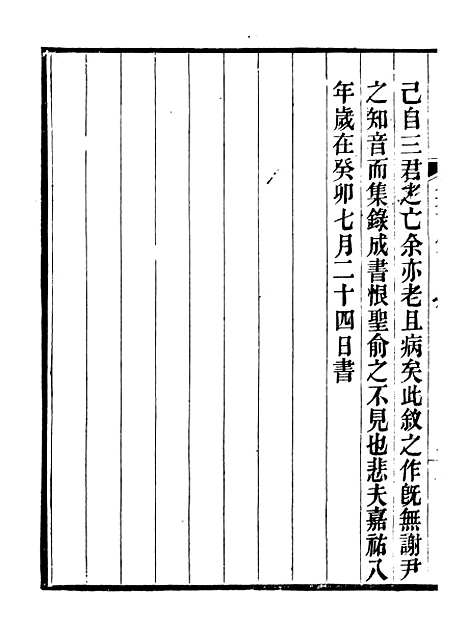 己自三君之亡余亦老且病矣此敘之作旣無謝尹
之知音而集錄成書恨聖俞之不見也悲夫嘉祐八
年歲在癸卯七月二十四日書